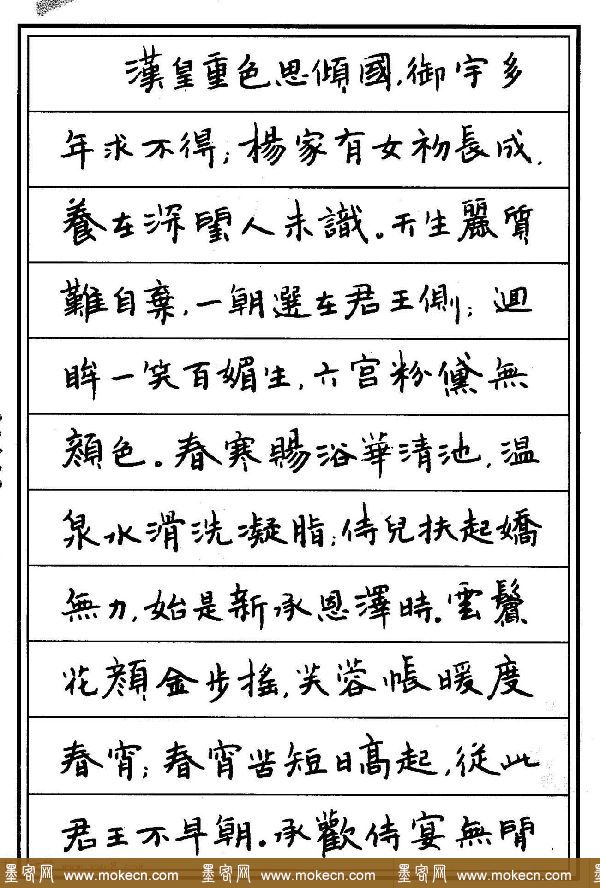 漢皇重色思傾國,御宇多
年求不得;楊家有女初長成,
養在深閨人未識。天生麗質
難自棄,一朝選在君王側;迴
眸一笑百媚生,六宮粉黛無
顏色。春寒賜浴華清池,溫
泉水滑洗凝脂;侍兒扶起嬌
無力,始是新承恩澤時。雲鬢
花顏金步搖,芙蓉帳暖度
春宵;春宵苦短日高起,從此
君王不早朝。承歡侍宴無閒
墨客网 www.mokecn.com 墨客网 www.mokecn.com 墨客网 www.mokecn.com 墨客网 www.mokecn.com